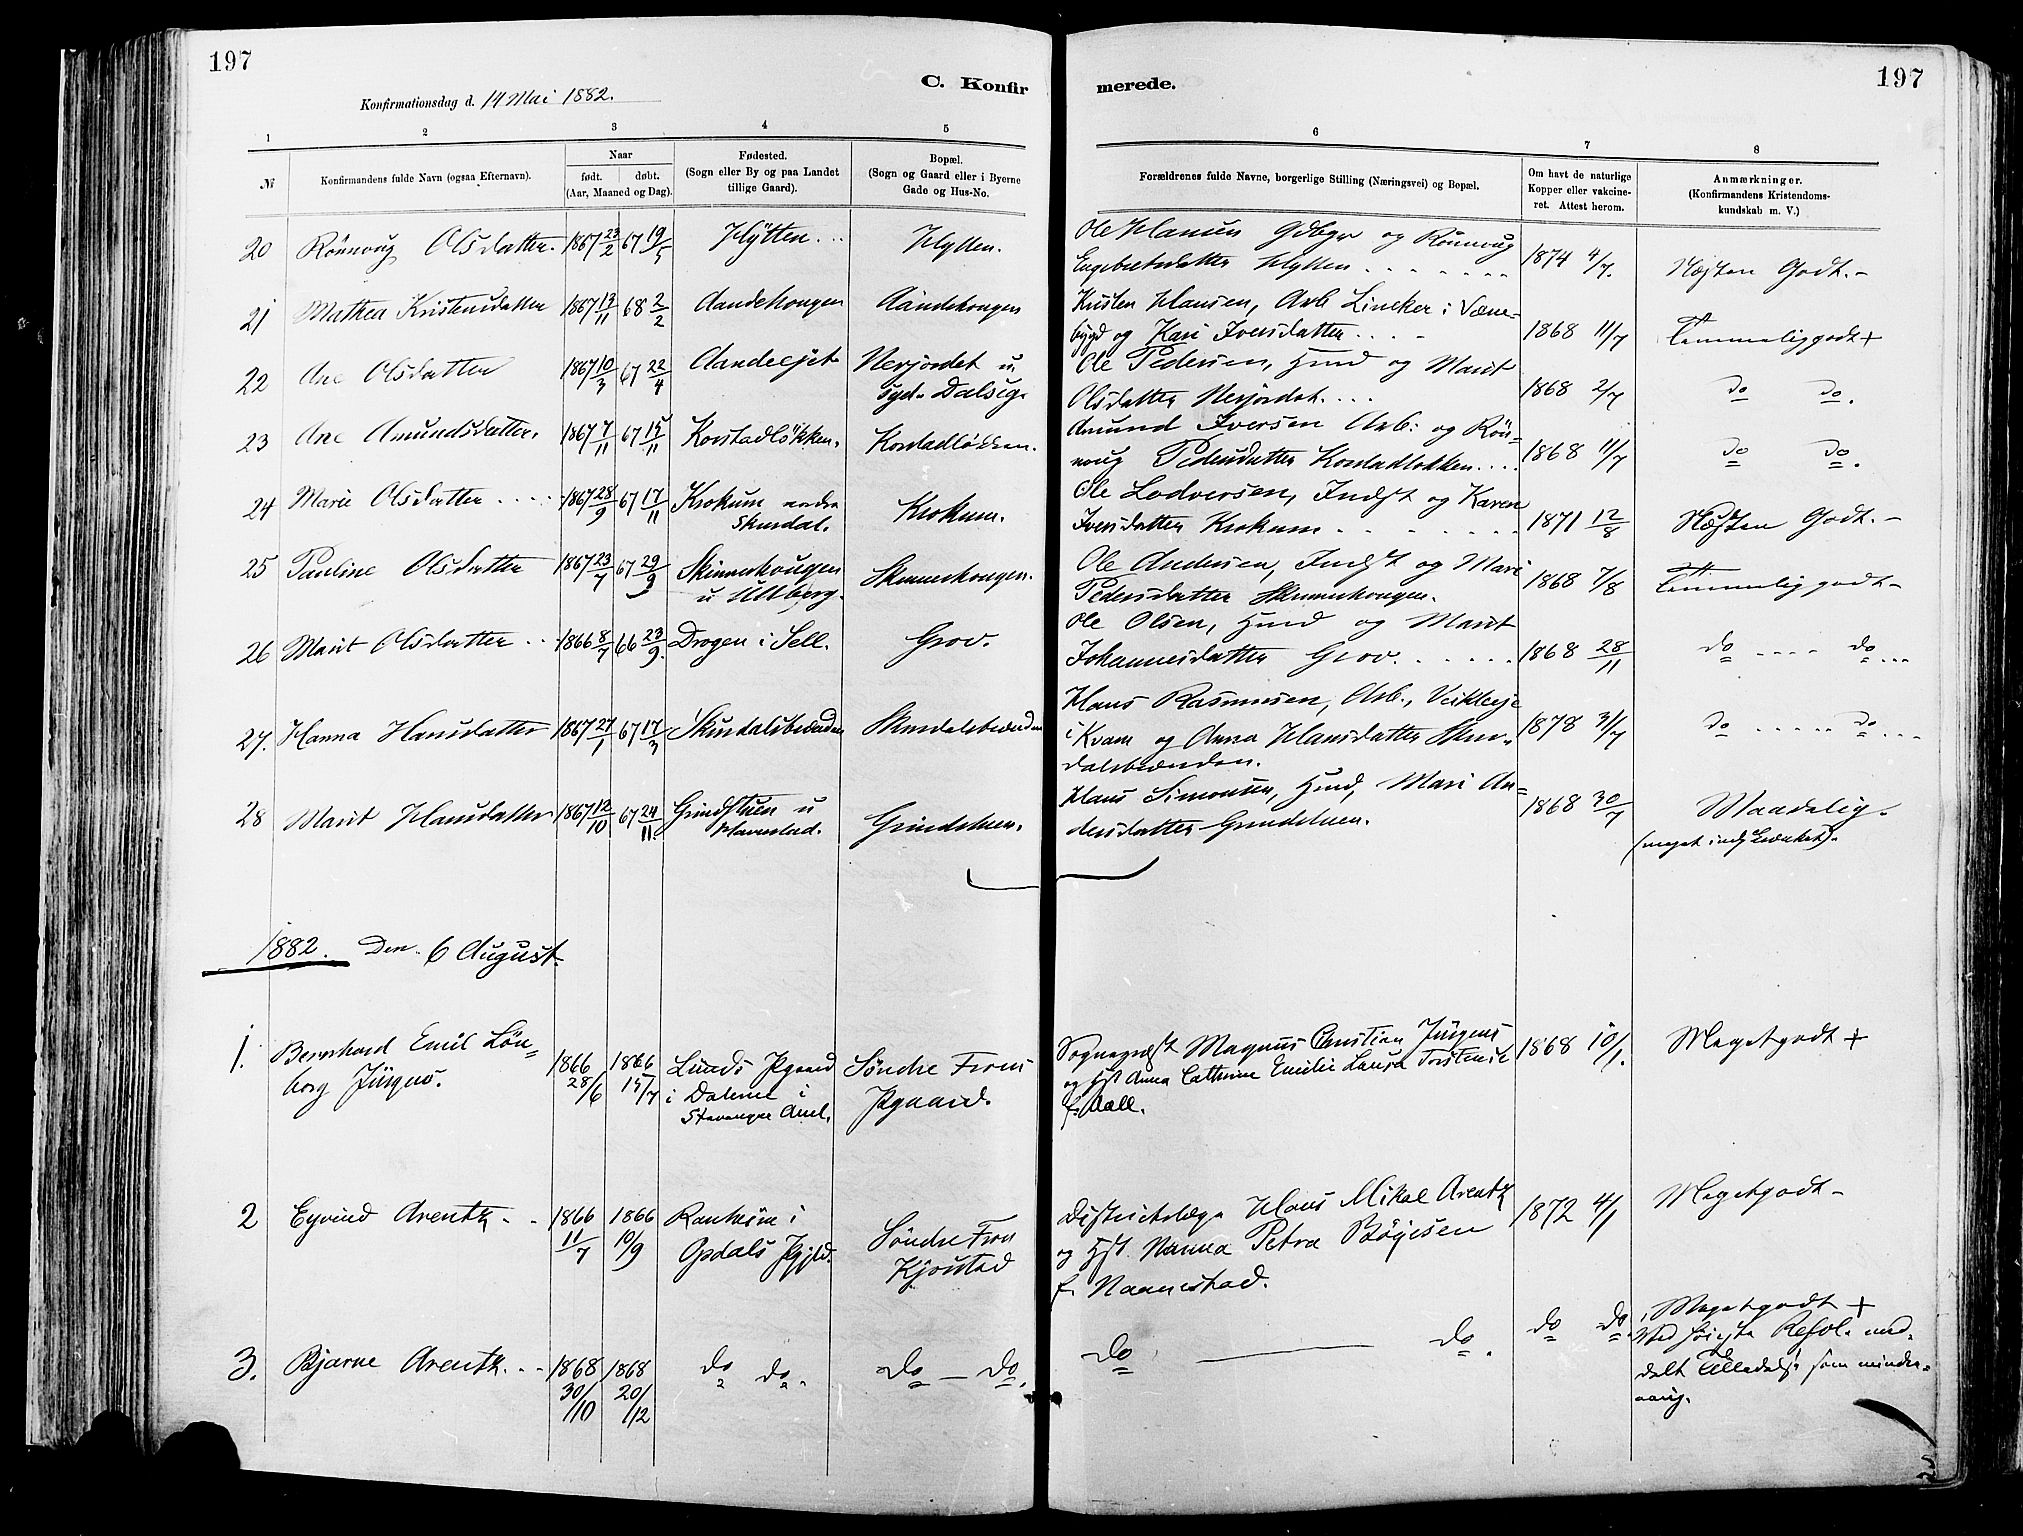 197
197
C. Konfir
merede.
Konfirmationsdag d. 14 Mai 1882.
1 2 3 4 5 6 7 8
№ Konfirmandens fulde Navn (ogsaa Efternavn). Naar født. døbt. (Aar, Maaned og Dag). Fødested. (Sogn eller By og paa Landet tillige Gaard). Bopæl. (Sogn og Gaard eller i Byerne Gade og Hus-No. Forældrenes fulde Navne, borgerlige Stilling (Næringsvei) og Bopæl. Om havt de naturlige Kopper eller vakcineret. Attest herom. Anmærkninger. (Konfirmandens Kristendomskundskab m. V.)
20 Rönnoug Olsdatter. 1867 23/2 67 19/5 Hytten... Hytten. Ole Hansen Gdbgr og Rönnoug
Engebretsdatter Hytten....... 1874 4/7. Næsten Godt.-
21 Mathea Kristensdatter 1867 13/11 68 2/2 Aandehougen Aandehougen Kristen Hansen, Arb
bygd og Kari Iversdatter.... 1868 11/7 Temmelig godt+
22 Ane Olsdatter 1867 10/3 67 22/4 Nerjordet u.
Ole Pedersen, Hmd og Marit
syd. Dalseg. Olsdatter Nerjordet.... 1868 2/7 do do.
23 Ane Amundsdatter. 1867 7/11 67 15/11 Korstadlökken. Korstadløkken. Amund Iversen Arb: og Rön=
noug Pedersdatter Korstadlokken.... 1868 11/7 do do.
24 Marie Olsdatter..... 1867 28/9 67 17/11 Krokum nordre Krokum. Ole Lodversen, Indst og Karen
Skurdal. Iversdatter Krokum....... 1871 12/8 Næsten Godt.-
25 Pauline Olsdatter 1867 23/7 67 29/9 Skinnerhougen Skinnerhougen. Ole Andersen, Indst og Mari
u Ulberg. Pedersdatter Skinnerhougen. 1868 7/8 Temmelig godt-
26 Marit Olsdatter... 1866 8/7 66 23/9. Drogen i Sell. Grov. Ole Olsen, Hmd og Marit
Johannesdatter Grov...... 1868 28/11 do.... do...
27. Hanna Hansdatter 1867 27/1 67 17/3 Skurdalsbrænden Skurdalsbrænden Hans Rasmusen, Arb., Veikleje
i Kvam og Anna Hansdatter Skur=
dalsbrænden. 1878 31/7 do..... do...
28 Marit Hansdatter 1867 12/10 67 24/11. Grindstuen u Grindstuen. Hans Simonsen, Hmd, Mari An=
Havnstad. dersdatter Grindstuen. 1868 30/7 Maadelig.
(meget indskrænket).
1882. Den 6 August.
1. Bernhard Emil Lön= 1866 28/6 1866 15/7 Lunds Pgaard Söndre Frons Sognepræst Magnus Christian Jürgens 1868 10/1. Megetgodt +
borg Jürgens. i Dalerne i Pgaard. og Hst Anna Cathrine Emilie Laura Torstense
Stavanger Amt. f. Aall.
2 Eyvind Arentz.. 1866 11/7 1866 19/9 Opdals Pgjld. Söndre Fron Districtslæge Hans Mikal Arentz 1872 4/1 Megetgodt-
Kjorstad og Hst. Nanna Petra Bøgesen
f. Naannestad.
3. Bjarne Arentz... 1868 30/10 1868 20/12 do do. do - do. do — do. do do. Megetgodt +
Ved høieste Resol. med=
delt Tilladelse som minder=
aarig.